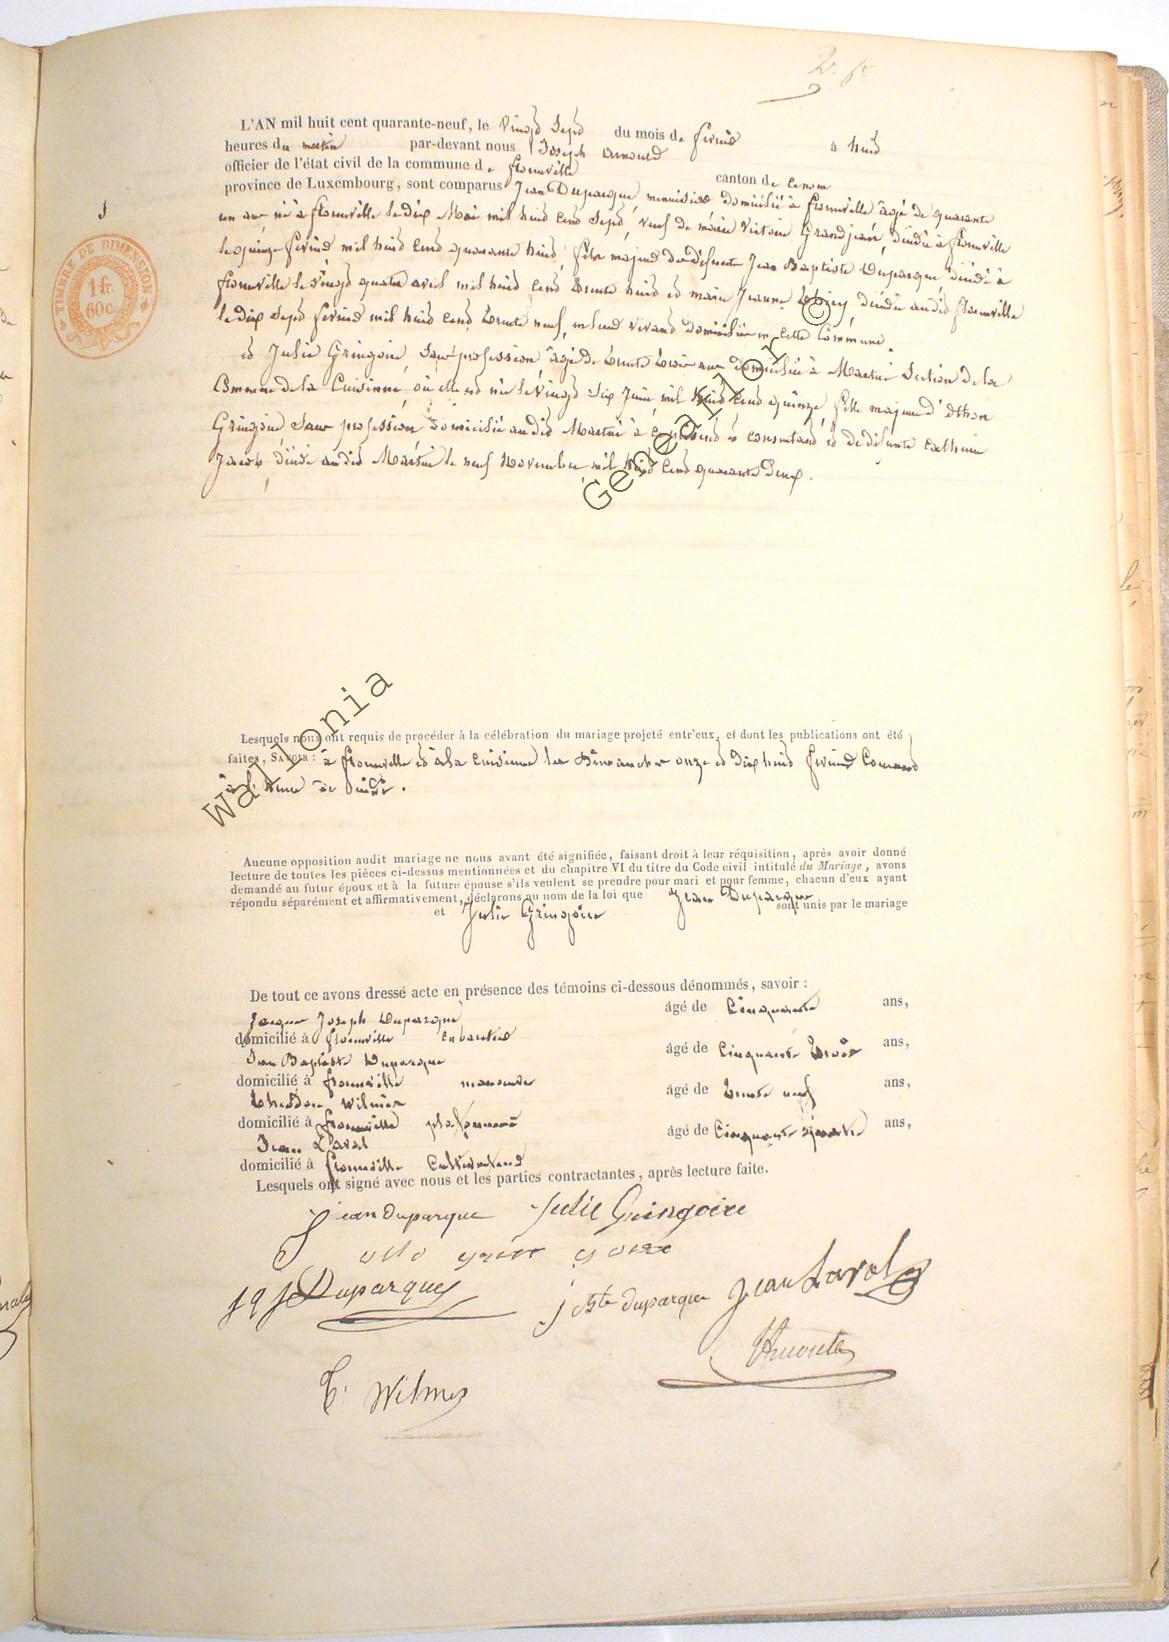 2. f^t
L'AN mil huit cent quarante-neuf, le vingt sept du mois de février à huit
heures du matin par-devant nous Joseph Arnould
officier de l'état civil de la commune de Florenville canton de
province de Luxembourg, sont comparus Jean Duparque, menuisier domicilié à Florenville âgé de quarante
un ans né à Florenville le dix Mai mil huit cent sept, veuf de Marie Victoire Grandjean, décédée à Florenville
le quinze février mil huit cent quarante huit, fils majeur de défunts Jean Baptiste Duparque, décédé à
Florenville le vingt quatre avril mil huit cent trente huit et Marie Jeanne décédée audit Florenville
le dix sept février mil huit cent trente neuf, en leur vivant domiciliés en cette Commune
et Julie Gringoire, sans profession âgée de trente trois ans domiciliée à Martué Section de la
Commune de la Cuisinne, où elle est née le vingt six Juin mil huit cent quinze fille majeure d'othon
Gringoire sans profession domicilié audit Martué à ce présent et consentant et de défunte Catherine
Jacob décédée audit Martué le neuf Novembre mil huit cent quarante deux.
TIMBRE DE DIMENSION
1 fr.
60 c.
Wallonia Genearlor ©
Lesquels nous ont requis de procéder à la célébration du mariage projeté entr'eux, et dont les publications ont été
faites, SAVOIR : à Florenville et à la Cuisinne les Dimanches onze et dix huit février Courant
à l'heure de midi.
Aucune opposition audit mariage ne nous ayant été signifiée, faisant droit à leur réquisition, après avoir donné
lecture de toutes les pièces ci-dessus mentionnées et du chapitre VI du titre du Code civil intitulé du Mariage, avons
demandé au futur époux et à la future épouse s'ils veulent se prendre pour mari et pour femme, chacun d'eux ayant
répondu séparément et affirmativement, déclarons au nom de la loi que Jean Duparque
et Julie Gringoire sont unis par le mariage
De tout ce avons dressé acte en présence des témoins ci-dessous dénommés, savoir :
Jacques Joseph Duparque âgé de Cinquante ans,
domicilié à Florenville cabaretier
Jean Baptiste Duparque âgé de Cinquante trois ans,
domicilié à Florenville manoeuvre
Théodore Wilmes âgé de trente neuf ans,
domicilié à Florenville plafonneur
Jean Laval âgé de Cinquante quatre ans,
domicilié à Florenville Cultivateur
Lesquels ont signé avec nous et les parties contractantes, après lecture faite.
jean duparque Julie Gringoire
otto grin goire
J q J Duparque j bte duparque Jean Laval
JArnould
T. Wilmes